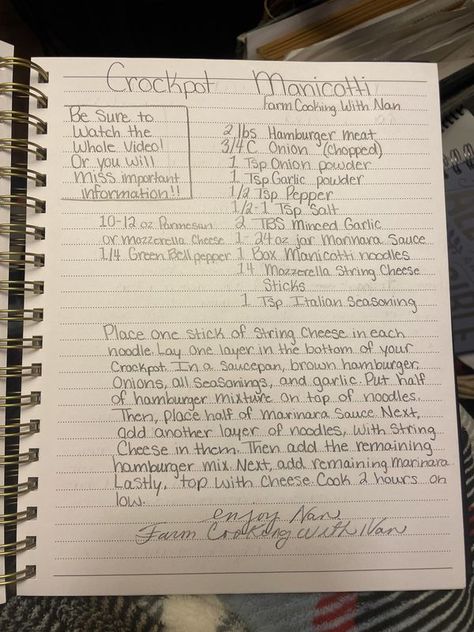 Crockpot Manicotti
Farm Cooking With Nan
Be Sure to
Watch the
Whole Video!
Or you will
miss important
information!!
2 lbs Hamburger meat
3/4 C Onion (chopped)
1 Tsp Onion powder
1 Tsp Garlic powder
1/2 Tsp Pepper
1/2-1 Tsp Salt
2 TBS Minced Garlic
1-24oz jar Marinara Sauce
1 Box Manicotti noodles
14 Mozzerella String Cheese
Sticks
1 Tsp Italian Seasoning
10-12 oz Parmesan
or Mozzerella Cheese
1/4 Green Bell pepper
Place one stick of String Cheese in each
noodle. Lay one layer in the bottom of your
Crockpot. In a saucepan, brown hamburger,
Onions, all seasonings, and garlic. Put half
of hamburger mixture on top of noodles.
Then, place half of marinara sauce. Next,
add another layer of noodles, with String
Cheese in them. Then add the remaining
hamburger mix. Next, add remaining Marinara.
Lastly, top with cheese. Cook 2 hours on
low.
enjoy Nan
Farm Cooking With Nan